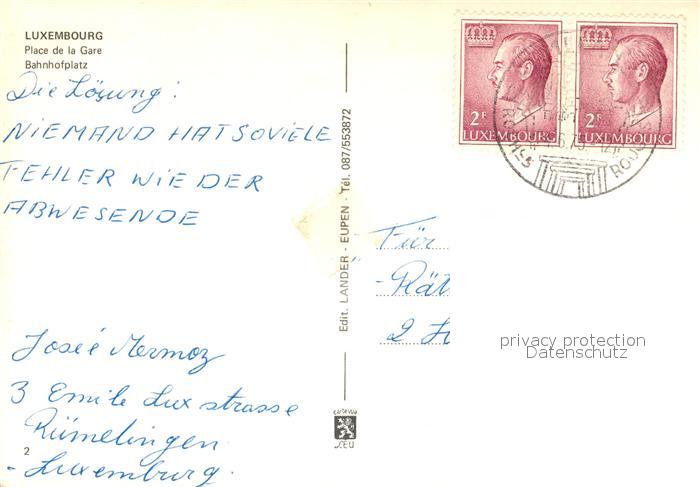 LUXEMBOURG
Place de la Gare
Bahnhofplatz
Die Lösung:
NIEMAND HAT SOVIELE
FEHLER WIE DER
ABWESENDE
Josée Mermoz
3 Emile Lux strasse
Rümelingen
- Luxemburg.
2
Edit. LANDER - EUPEN - Tél. 087/553872
carte vue
2F
LUXEMBOURG
2F
LUXEMBOURG
Für
Rät
2
privacy protection
Datenschutz